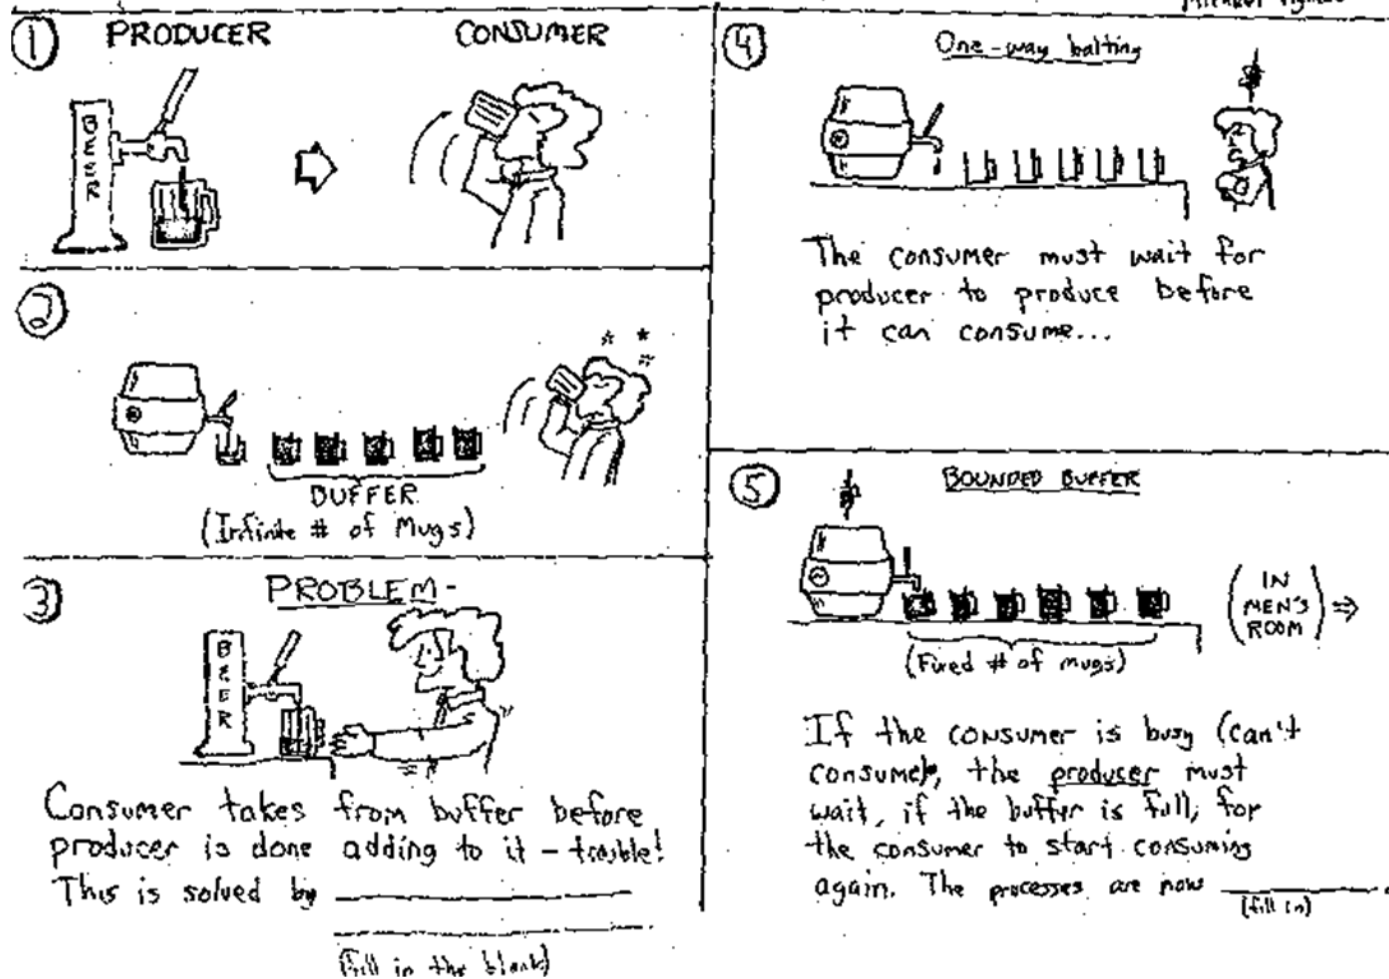 Michael
1
PRODUCER
CONSUMER
BEER
2
BUFFER
(Infinite # of Mugs)
3
PROBLEM-
BEER
Consumer takes from buffer before
producer is done adding to it - trouble!
This is solved by
(fill in the blank)
4
One-way halting
The consumer must wait for
producer to produce before
it can consume...
5
BOUNDED BUFFER
(Fixed # of mugs)
(IN
MEN'S
ROOM) ⇒
If the consumer is busy (can't
consume), the producer must
wait, if the buffer is full, for
the consumer to start consuming
again. The processes are now ____________.
(fill in)